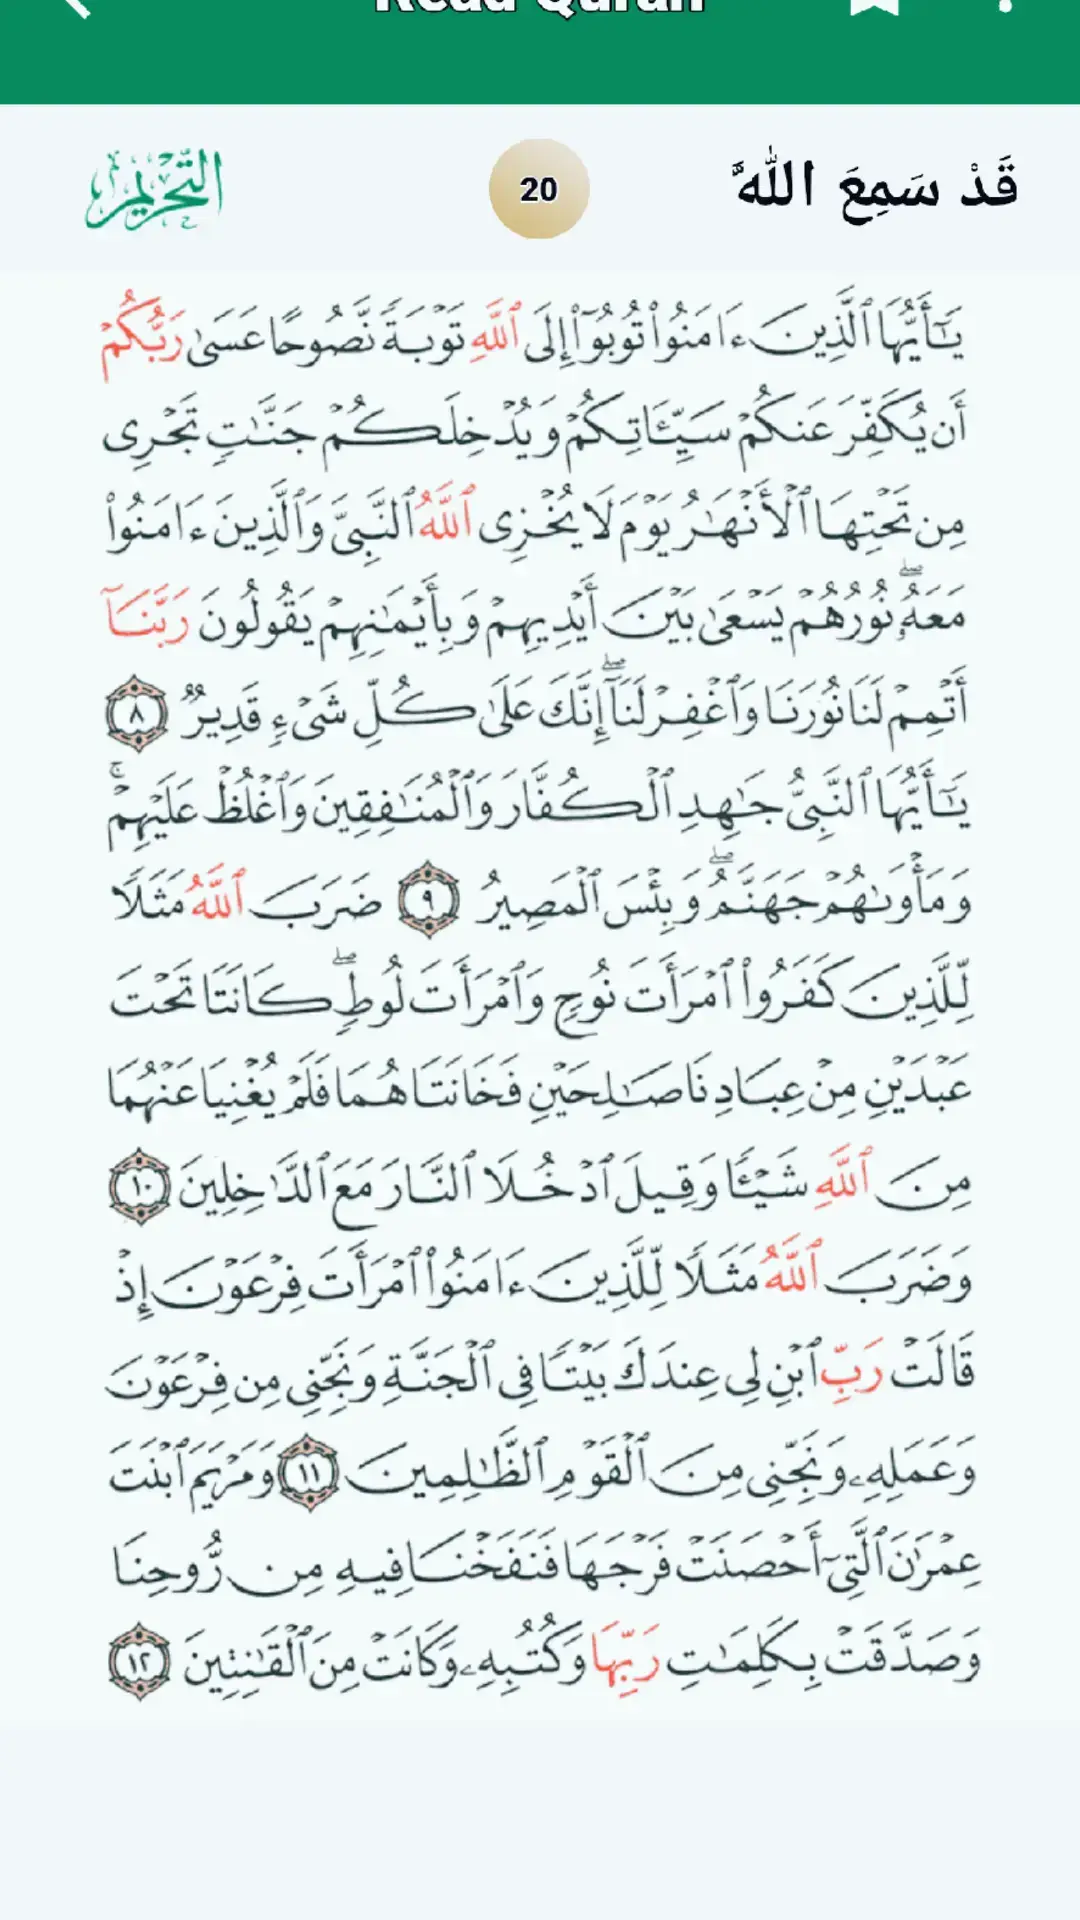 Read Quran
قَدْ سَمِعَ اللّٰهُ 20 التحريم
يَٰٓأَيُّهَا ٱلَّذِينَ ءَامَنُوا۟ تُوبُوٓا۟ إِلَى ٱللَّهِ تَوْبَةً نَّصُوحًا عَسَىٰ رَبُّكُمْ
أَن يُكَفِّرَ عَنكُمْ سَيِّـَٔاتِكُمْ وَيُدْخِلَكُمْ جَنَّٰتٍ تَجْرِى
مِن تَحْتِهَا ٱلْأَنْهَٰرُ يَوْمَ لَا يُخْزِى ٱللَّهُ ٱلنَّبِىَّ وَٱلَّذِينَ ءَامَنُوا۟
مَعَهُۥ ۖ نُورُهُمْ يَسْعَىٰ بَيْنَ أَيْدِيهِمْ وَبِأَيْمَٰنِهِمْ يَقُولُونَ رَبَّنَآ
أَتْمِمْ لَنَا نُورَنَا وَٱغْفِرْ لَنَآ ۖ إِنَّكَ عَلَىٰ كُلِّ شَىْءٍ قَدِيرٌ ٨
يَٰٓأَيُّهَا ٱلنَّبِىُّ جَٰهِدِ ٱلْكُفَّارَ وَٱلْمُنَٰفِقِينَ وَٱغْلُظْ عَلَيْهِمْ ۚ
وَمَأْوَىٰهُمْ جَهَنَّمُ ۖ وَبِئْسَ ٱلْمَصِيرُ ٩ ضَرَبَ ٱللَّهُ مَثَلًا
لِّلَّذِينَ كَفَرُوا۟ ٱمْرَأَتَ نُوحٍ وَٱمْرَأَتَ لُوطٍ ۖ كَانَتَا تَحْتَ
عَبْدَيْنِ مِنْ عِبَادِنَا صَٰلِحَيْنِ فَخَانَتَاهُمَا فَلَمْ يُغْنِيَا عَنْهُمَا
مِنَ ٱللَّهِ شَيْـًٔا وَقِيلَ ٱدْخُلَا ٱلنَّارَ مَعَ ٱلدَّٰخِلِينَ ١٠
وَضَرَبَ ٱللَّهُ مَثَلًا لِّلَّذِينَ ءَامَنُوا۟ ٱمْرَأَتَ فِرْعَوْنَ إِذْ
قَالَتْ رَبِّ ٱبْنِ لِى عِندَكَ بَيْتًا فِى ٱلْجَنَّةِ وَنَجِّنِى مِن فِرْعَوْنَ
وَعَمَلِهِۦ وَنَجِّنِى مِنَ ٱلْقَوْمِ ٱلظَّٰلِمِينَ ١١ وَمَرْيَمَ ٱبْنَتَ
عِمْرَٰنَ ٱلَّتِىٓ أَحْصَنَتْ فَرْجَهَا فَنَفَخْنَا فِيهِ مِن رُّوحِنَا
وَصَدَّقَتْ بِكَلِمَٰتِ رَبِّهَا وَكُتُبِهِۦ وَكَانَتْ مِنَ ٱلْقَٰنِتِينَ ١٢